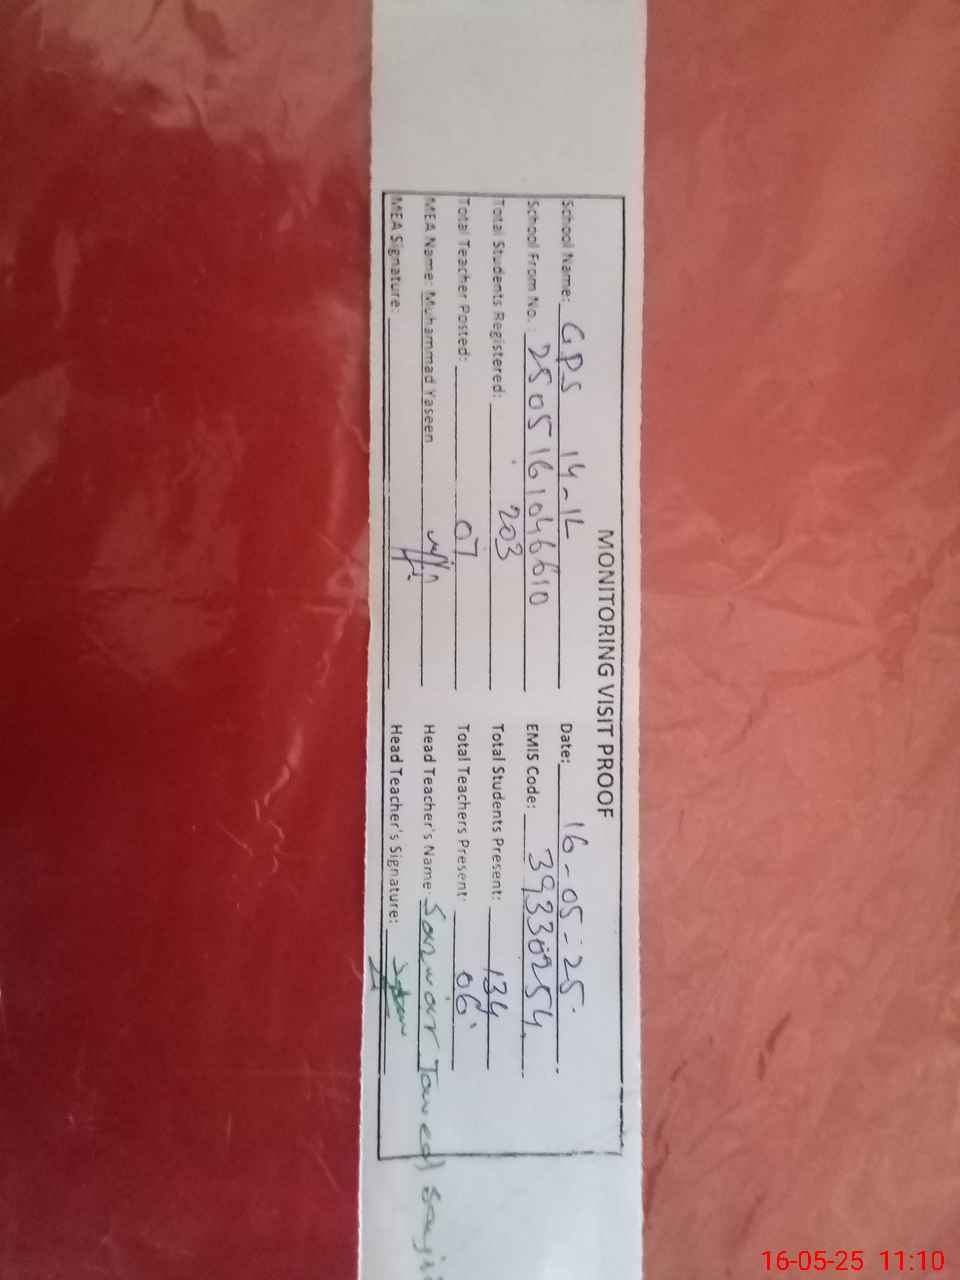 MONITORING VISIT PROOF
School Name: GPS 14-1L Date: 16-05-25
School From No.: 2505161046610 EMIS Code: 39330254
Total Students Registered: 203 Total Students Present: 134
Total Teacher Posted: 07 Total Teachers Present: 06
MEA Name: Muhammad Yaseen Head Teacher's Name: Sarwar
MEA Signature: Head Teacher's Signature:
16-05-25 11:10